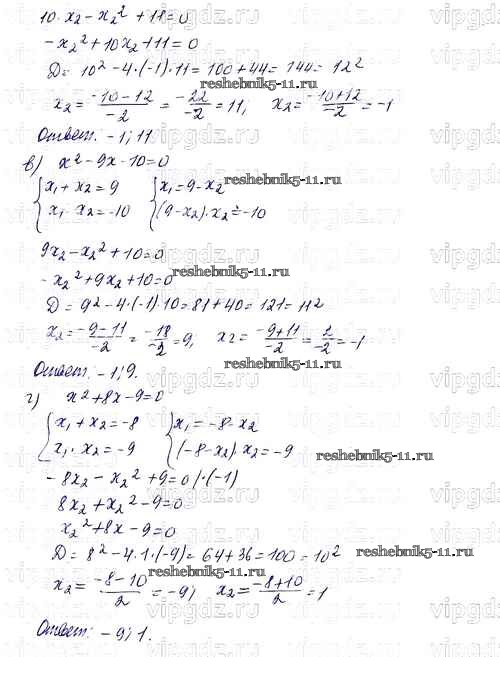 10·x₂ - x₂² + 11 = 0
-x₂² + 10x₂ + 11 = 0
D = 10² - 4·(-1)·11 = 100 + 44 = 144 = 12²
reshebnik5-11.ru
x₂ = (-10-12)/(-2) = (-22)/(-2) = 11; x₂ = (-10+12)/(-2) = -1
Ответ: -1; 11
в) x² - 9x - 10 = 0
reshebnik5-11.ru
{x₁ + x₂ = 9 {x₁ = 9 - x₂
{x₁·x₂ = -10 {(9 - x₂)·x₂ = -10
reshebnik5-11.ru
9x₂ - x₂² + 10 = 0
reshebnik5-11.ru
-x₂² + 9x₂ + 10 = 0
D = 9² - 4·(-1)·10 = 81 + 40 = 121 = 11²
x₂ = (-9-11)/(-2) = (-18)/(-2) = 9; x₂ = (-9+11)/(-2) = 2/(-2) = -1
reshebnik5-11.ru
Ответ: -1; 9.
г) x² + 8x - 9 = 0
{x₁ + x₂ = -8 {x₁ = -8 - x₂
{x₁·x₂ = -9 {(-8 - x₂)·x₂ = -9
reshebnik5-11.ru
-8x₂ - x₂² + 9 = 0 |·(-1)
8x₂ + x₂² - 9 = 0
x₂² + 8x - 9 = 0
D = 8² - 4·1·(-9) = 64 + 36 = 100 = 10²
reshebnik5-11.ru
reshebnik5-11.ru
x₂ = (-8-10)/2 = -9; x₂ = (-8+10)/2 = 1
Ответ: -9; 1.